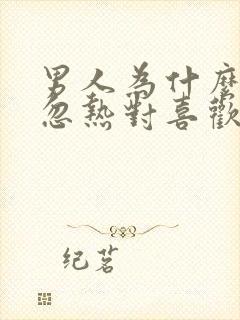 男人為什麼
忽熱對喜歡
纪茗